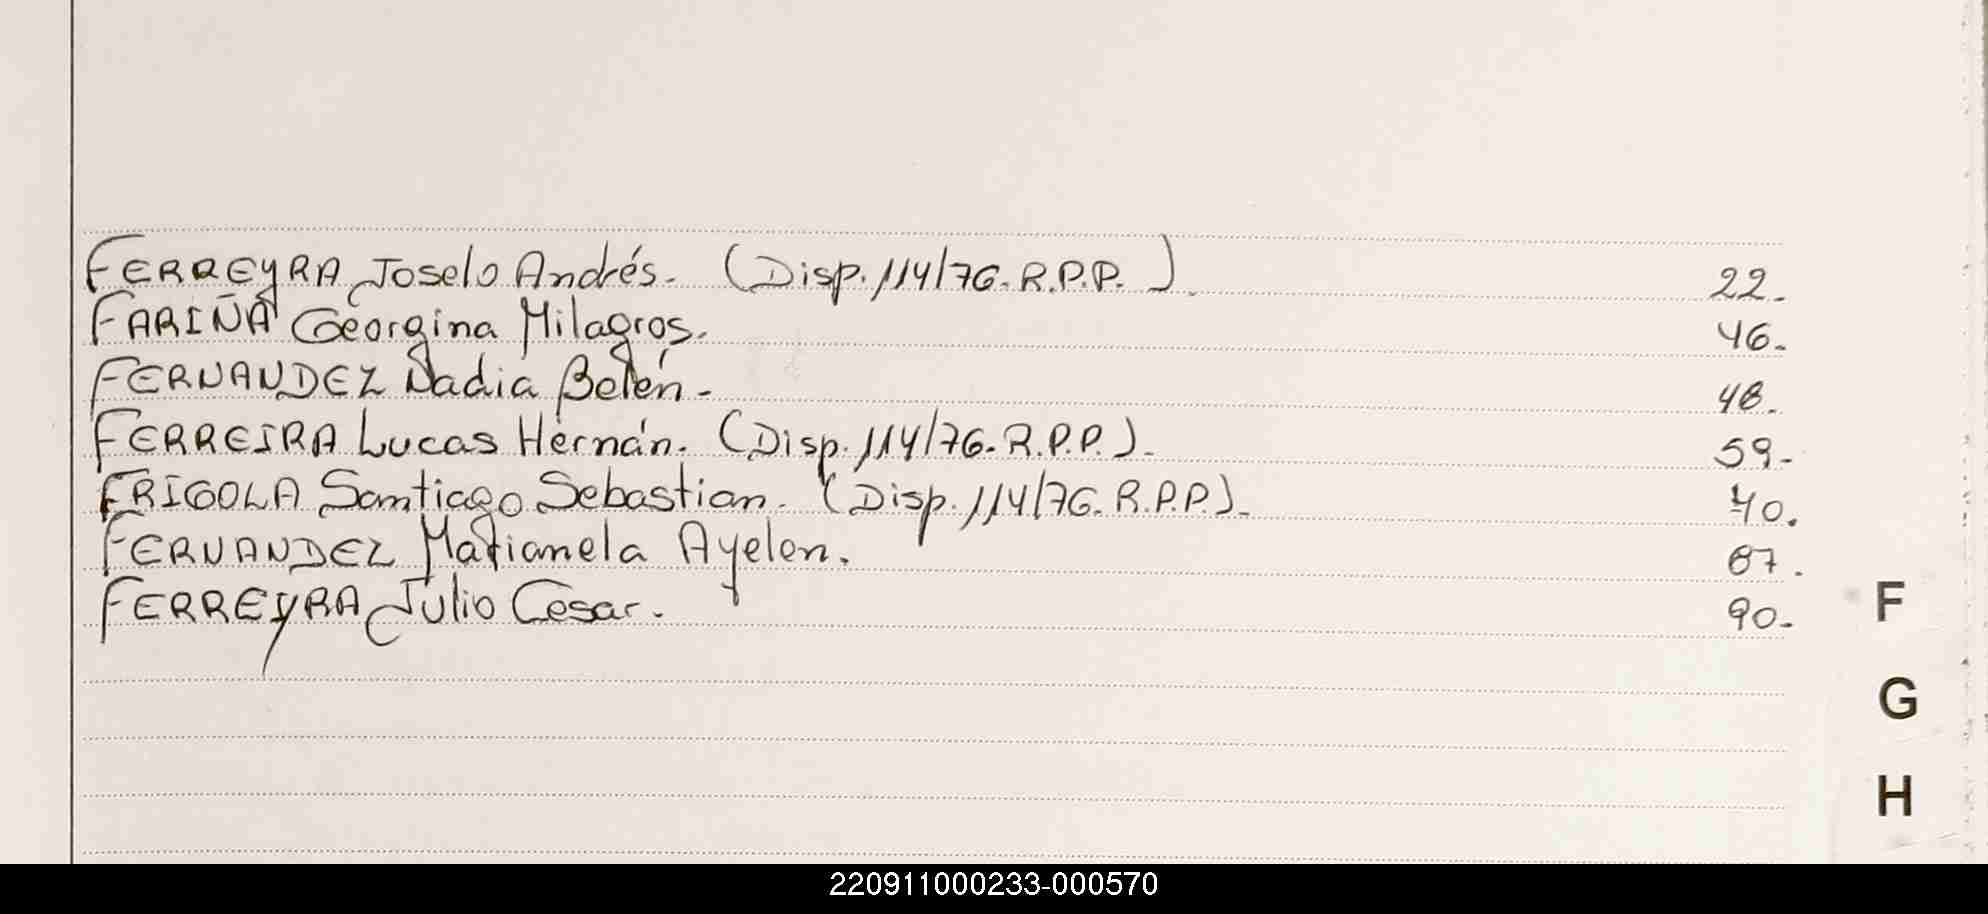 FERREYRA Joselo Andrés. (Disp. 114/76. R.P.P.). 22.
FARIÑA Georgina Milagros. 46.
FERNANDEZ Nadia Belén. 48.
FERREIRA Lucas Hernán. (Disp. 114/76. R.P.P.). 59.
FRIGOLA Santiago Sebastian. (Disp. 114/76. R.P.P.). 70.
FERNANDEZ Marianela Ayelen. 87.
FERREYRA Julio Cesar. 90.
F
G
H
220911000233-000570